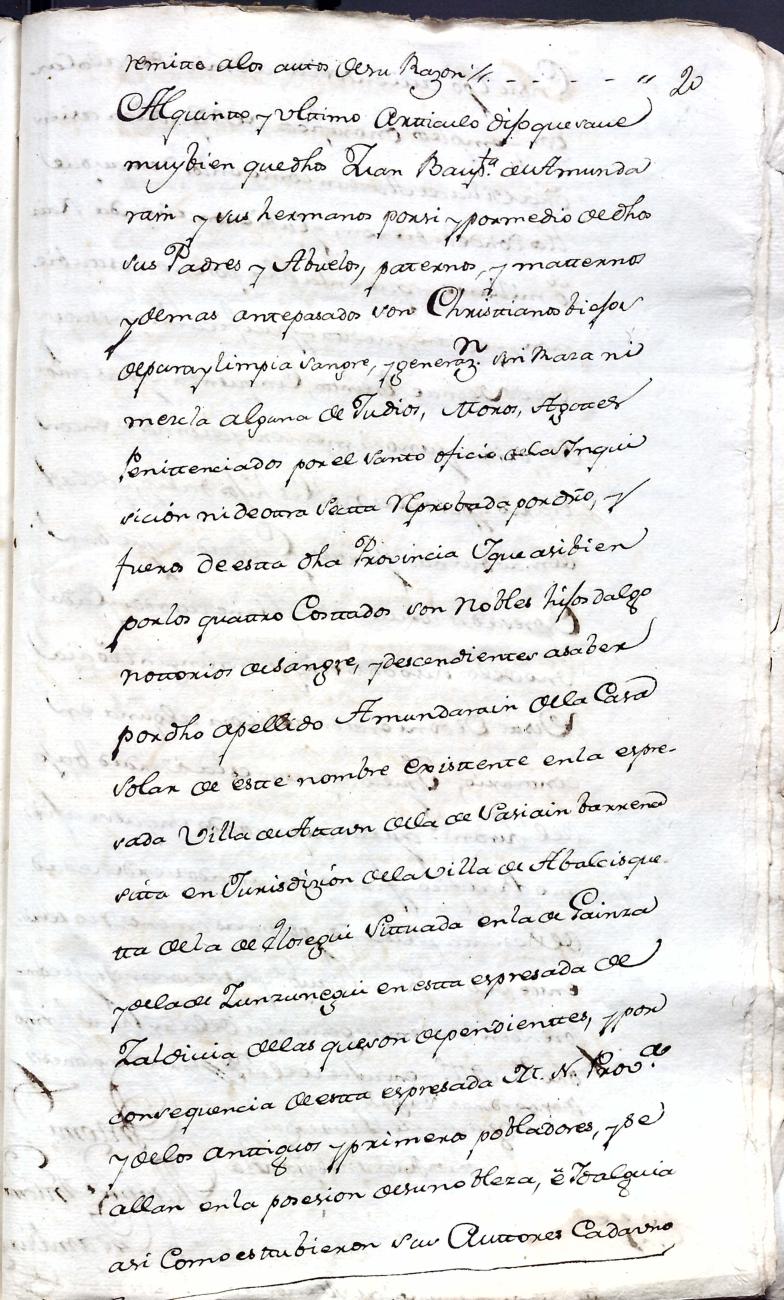 remitto alos auttos desu Razon //. - - - - " 20
Alquintto y ulttimo Artticulo dijo que save
muybien que dhos Juan Baupta. de Amunda
rain y sus hermanos porsi y pormedio de dhos
sus Padres y Abuelos, paternos, y matternos
y demas antepasados son Christtianos biejos
depura y limpia sangre, y generazn. sin Raza ni
mezcla alguna de Judios, Moros, Agottes
Penittenciados por el santo oficio dela Inqui
sición ni de ottra Sectta Reprobada por dro, y
fueros de estta dha Provincia Yque asibien
porlos quattro Costtados son Nobles hijos dalgo
nottorios de sangre, y descendientes asaber
pordho apellido Amundarain dela Casa
solar de estte nombre existtente enla espre-
sada Villa de Attaun dela de Sasiain barrena
sitta en Jurisdizión dela Villa de Abalcisque-
tta dela de Ylosegui Sittuada enla de Gainza
y dela de Zunzunegui en estta espresada de
Zaldivia delas queson dependienttes, y por
consequencia de estta espresada M. N. Prova.
y delos anttiguos y primeros pobladores, y se
allan enla posesion desu nobleza, é Idalguia
asi Como esttubieron sus Auttores Cadauno